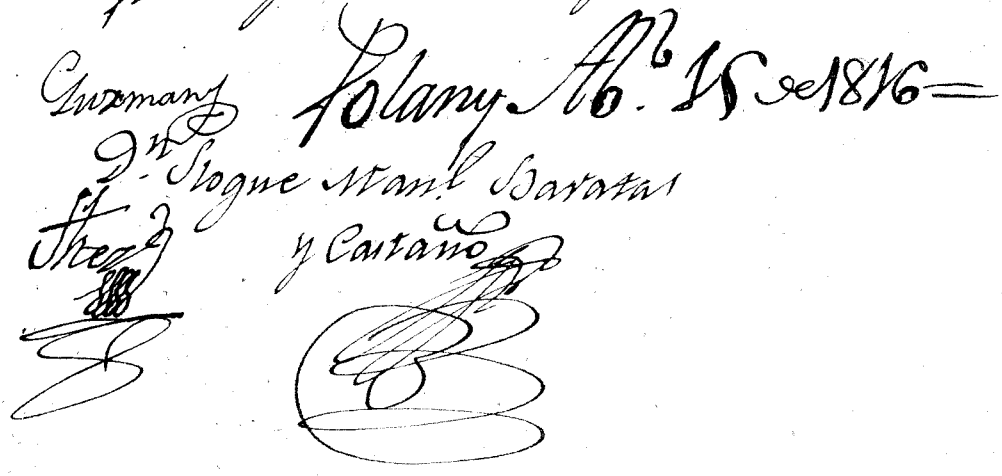 Guzman
Polany Ab.l 15 de 1816=
D.n Roque Man.l Baratas
y Castaño